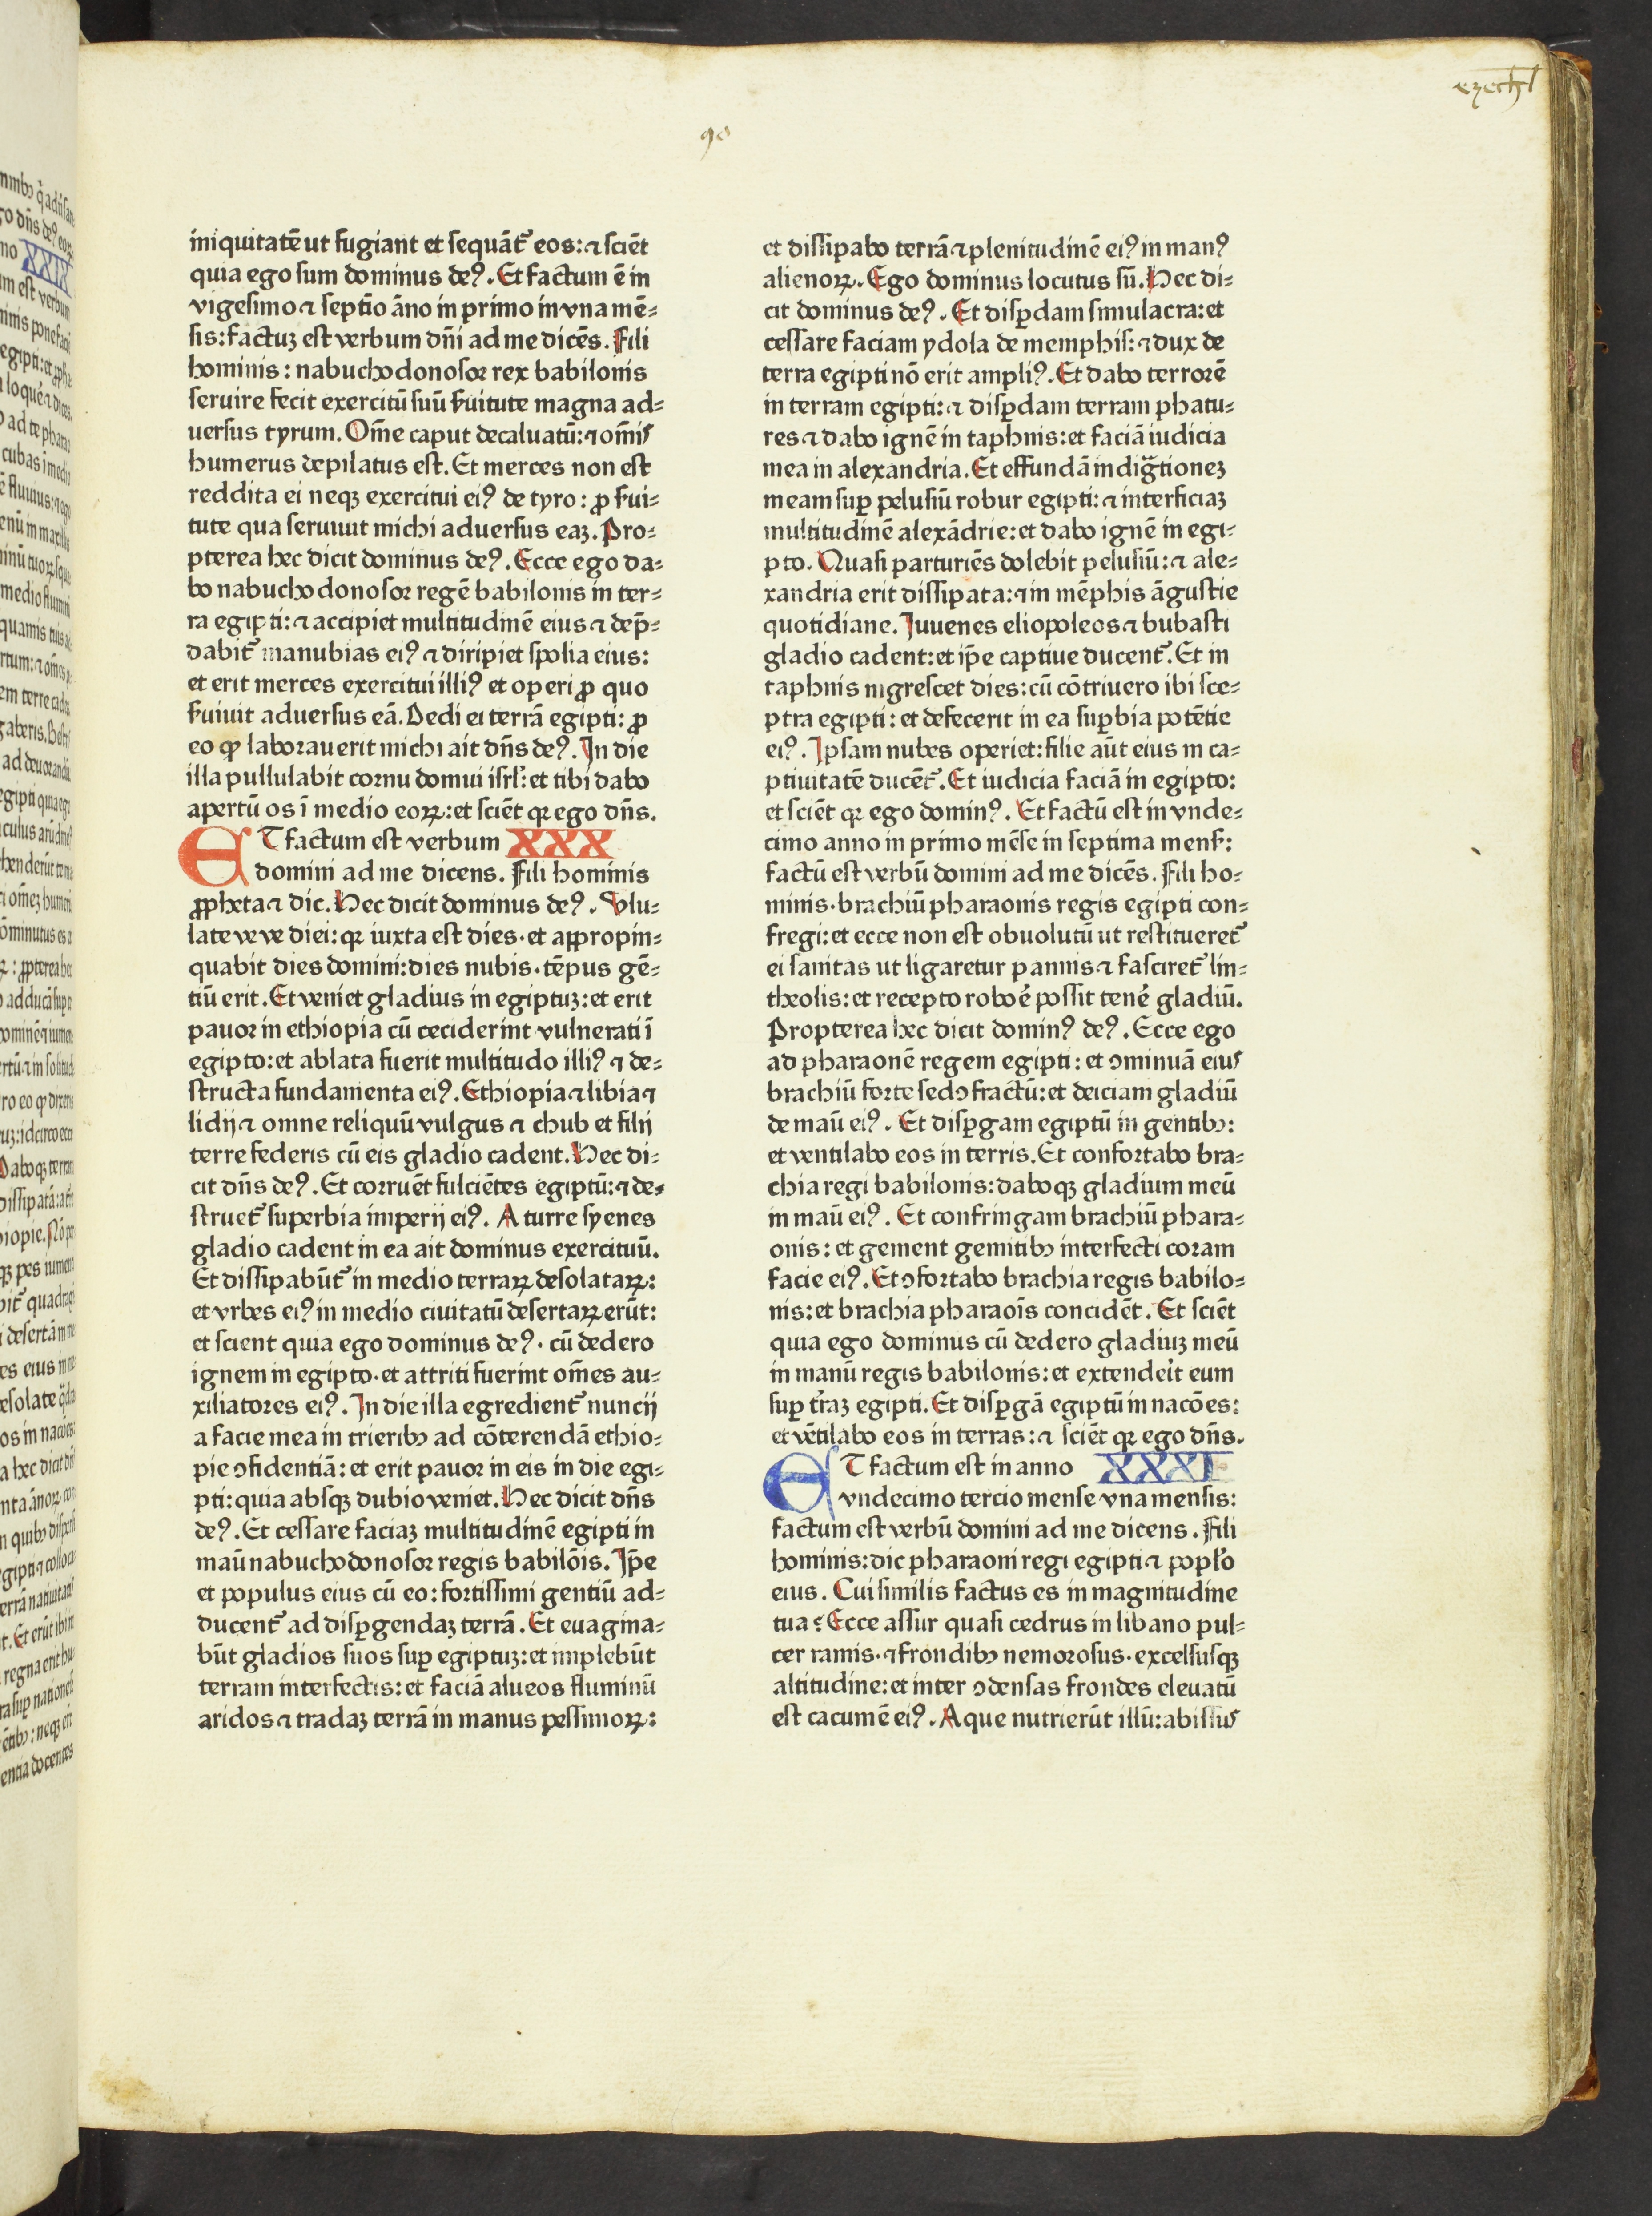 ezechl
90
iniquitatē ut fugiant et sequāt᷑ eos: ⁊ sciēt
quia ego sum dominus deꝰ. Et factum ē in
vigesimo ⁊ septīo āno in primo in vna mē⸗
sis: factuꝫ est verbum dn̄i ad me dicēs. Fili
hominis: nabuchodonosor rex babilonis
seruire fecit exercitū suū ẜuitute magna ad⸗
uersus tyrum. Om̄e caput decaluatū: ⁊ om̄is
humerus depilatus est. Et merces non est
reddita ei neqꝫ exercitui eiꝰ de tyro: ꝓ ẜui⸗
tute qua seruiuit michi aduersus eaꝫ. Pro⸗
pterea hec dicit dominus deꝰ. Ecce ego da⸗
bo nabuchodonosor regē babilonis in ter⸗
ra egipti: ⁊ accipiet multitudinē eius ⁊ dep̄⸗
dabit᷑ manubias eiꝰ ⁊ diripiet spolia eius:
et erit merces exercitui illiꝰ et operi ꝓ quo
ẜuiuit aduersus eā. Dedi ei terrā egipti: ꝓ
eo ꝙ laborauerit michi ait dn̄s deꝰ. In die
illa pullulabit cornu domui isrl᷑: et tibi dabo
apertū os ī medio eoꝝ: et sciēt qꝛ ego dn̄s.
ET factum est verbum XXX
domini ad me dicens. Fili hominis
ꝓpheta ⁊ dic. Hec dicit dominus deꝰ. Vlu⸗
late ve ve diei: qꝛ iuxta est dies· et aꝓpropin⸗
quabit dies domini: dies nubis· tēpus gē⸗
tiū erit. Et veniet gladius in egiptuꝫ: et erit
pauor in ethiopia cū ceciderint vulnerati ī
egipto: et ablata fuerit multitudo illiꝰ ⁊ de⸗
structa fundamenta eiꝰ. Ethiopia ⁊ libia ⁊
lidij ⁊ omne reliquū vulgus ⁊ chub et filij
terre federis cū eis gladio cadent. Hec di⸗
cit dn̄s deꝰ. Et corruēt fulciētes egiptū: ⁊ de⸗
struet᷑ superbia imperij eiꝰ. A turre syenes
gladio cadent in ea ait dominus exercituū.
Et dissipabūt᷑ in medio terraꝝ desolataꝝ:
et vrbes eiꝰ in medio ciuitatū desertaꝝ erūt:
et scient quia ego dominus deꝰ· cū dedero
ignem in egipto· et attriti fuerint om̄es au⸗
xiliatores eiꝰ. In die illa egredient᷑ nuncij
a facie mea in trieribꝫ ad cōterendā ethio⸗
pie ꝯfidentiā: et erit pauor in eis in die egi⸗
pti: quia absqꝫ dubio veniet. Hec dicit dn̄s
deꝰ. Et cessare faciaꝫ multitudinē egipti in
maū nabuchodonosor regis babilōis. Ip̄e
et populus eius cū eo: fortissimi gentiū ad⸗
ducent᷑ ad disꝑgendaꝫ terrā. Et euagina⸗
būt gladios suos suꝑ egiptuꝫ: et implebūt
terram interfectis: et faciā alueos fluminū
aridos ⁊ tradaꝫ terrā in manus pessimoꝝ:
et dissipabo terrā ⁊ plenitudinē eiꝰ in manꝰ
alienoꝝ. Ego dominus locutus sū. Hec di⸗
cit dominus deꝰ. Et disꝑdam simulacra: et
cessare faciam ydola de memphis: ⁊ dux de
terra egipti nō erit ampliꝰ. Et dabo terrorē
in terram egipti: ⁊ disꝑdam terram phatu⸗
res ⁊ dabo ignē in taphnis: et faciā iudicia
mea in alexandria. Et effundā indigᷓtioneꝫ
meam suꝑ pelusiū robur egipti: ⁊ interficiaꝫ
multitudinē alexādrie: et dabo ignē in egi⸗
pto. Quasi parturiēs dolebit pelusiū: ⁊ ale⸗
xandria erit dissipata: ⁊ in mēphis āgustie
quotidiane. Iuuenes eliopoleos ⁊ bubasti
gladio cadent: et ip̄e captiue ducent᷑. Et in
taphnis nigrescet dies: cū cōtriuero ibi sce⸗
ptra egipti: et defecerit in ea suꝑbia potētie
eiꝰ. Ipsam nubes operiet: filie aūt eius in ca⸗
ptiuitatē ducēt᷑. Et iudicia faciā in egipto:
et sciēt qꝛ ego dominꝰ. Et factū est in vnde⸗
cimo anno in primo mēse in septima menẜ:
factū est verbū domini ad me dicēs. Fili ho⸗
minis· brachiū pharaonis regis egipti con⸗
fregi: et ecce non est obuolutū ut restitueret᷑
ei sanitas ut ligaretur pannis ⁊ fasciret᷑ lin⸗
theolis: et recepto robore᷑ possit tene᷑ gladiū.
Propterea hec dicit dominꝰ deꝰ. Ecce ego
ad pharaonē regem egipti: et ꝯminuā eius
brachiū forte sed ꝯfractū: et deiciam gladiū
de maū eiꝰ. Et disꝑgam egiptū in gentibꝫ:
et ventilabo eos in terris. Et confortabo bra⸗
chia regi babilonis: daboqꝫ gladium meū
in maū eiꝰ. Et confringam brachiū phara⸗
onis: et gement gemitibꝫ interfecti coram
facie eiꝰ. Et ꝯfortabo brachia regis babilo⸗
nis: et brachia pharaoīs concidēt. Et sciēt
quia ego dominus cū dedero gladiuꝫ meū
in manū regis babilonis: et extendeit᷑ eum
suꝑ tr᷑aꝫ egipti. Et disꝑgā egiptū in nacōes:
et vētilabo eos in terras: ⁊ sciēt qꝛ ego dn̄s.
ET factum est in anno XXXI
vndecimo tercio mense vna mensis:
factum est verbū domini ad me dicens. Fili
hominis: dic pharaoni regi egipti ⁊ popl̓o
eius. Cui similis factus es in magnitudine
tua? Ecce assur quasi cedrus in libano pul⸗
cer ramis· ⁊ frondibꝫ nemorosus· excelsusqꝫ
altitudine: et inter ꝯdensas frondes eleuatū
est cacumē eiꝰ. Aque nutrierūt illū: abissus